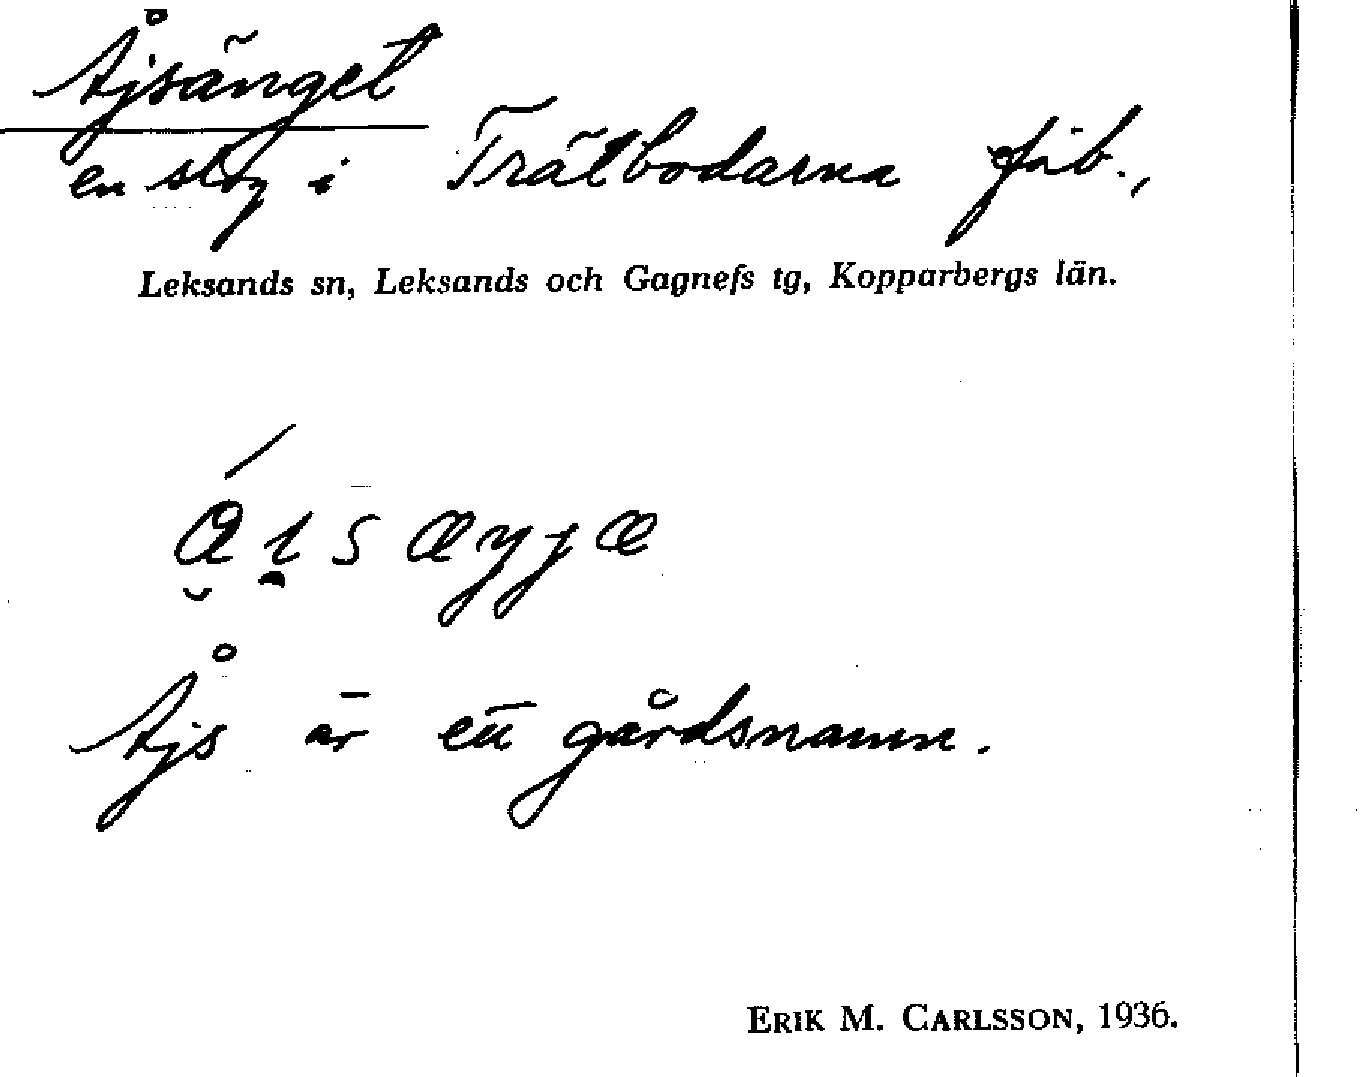 Åjsänget
en slog i Trälbodarna fäb.,
Leksands sn, Leksands och Gagnefs tg, Kopparbergs län.
Åjs är ett gårdsnamn.
ERIK M. CARLSSON, 1936.